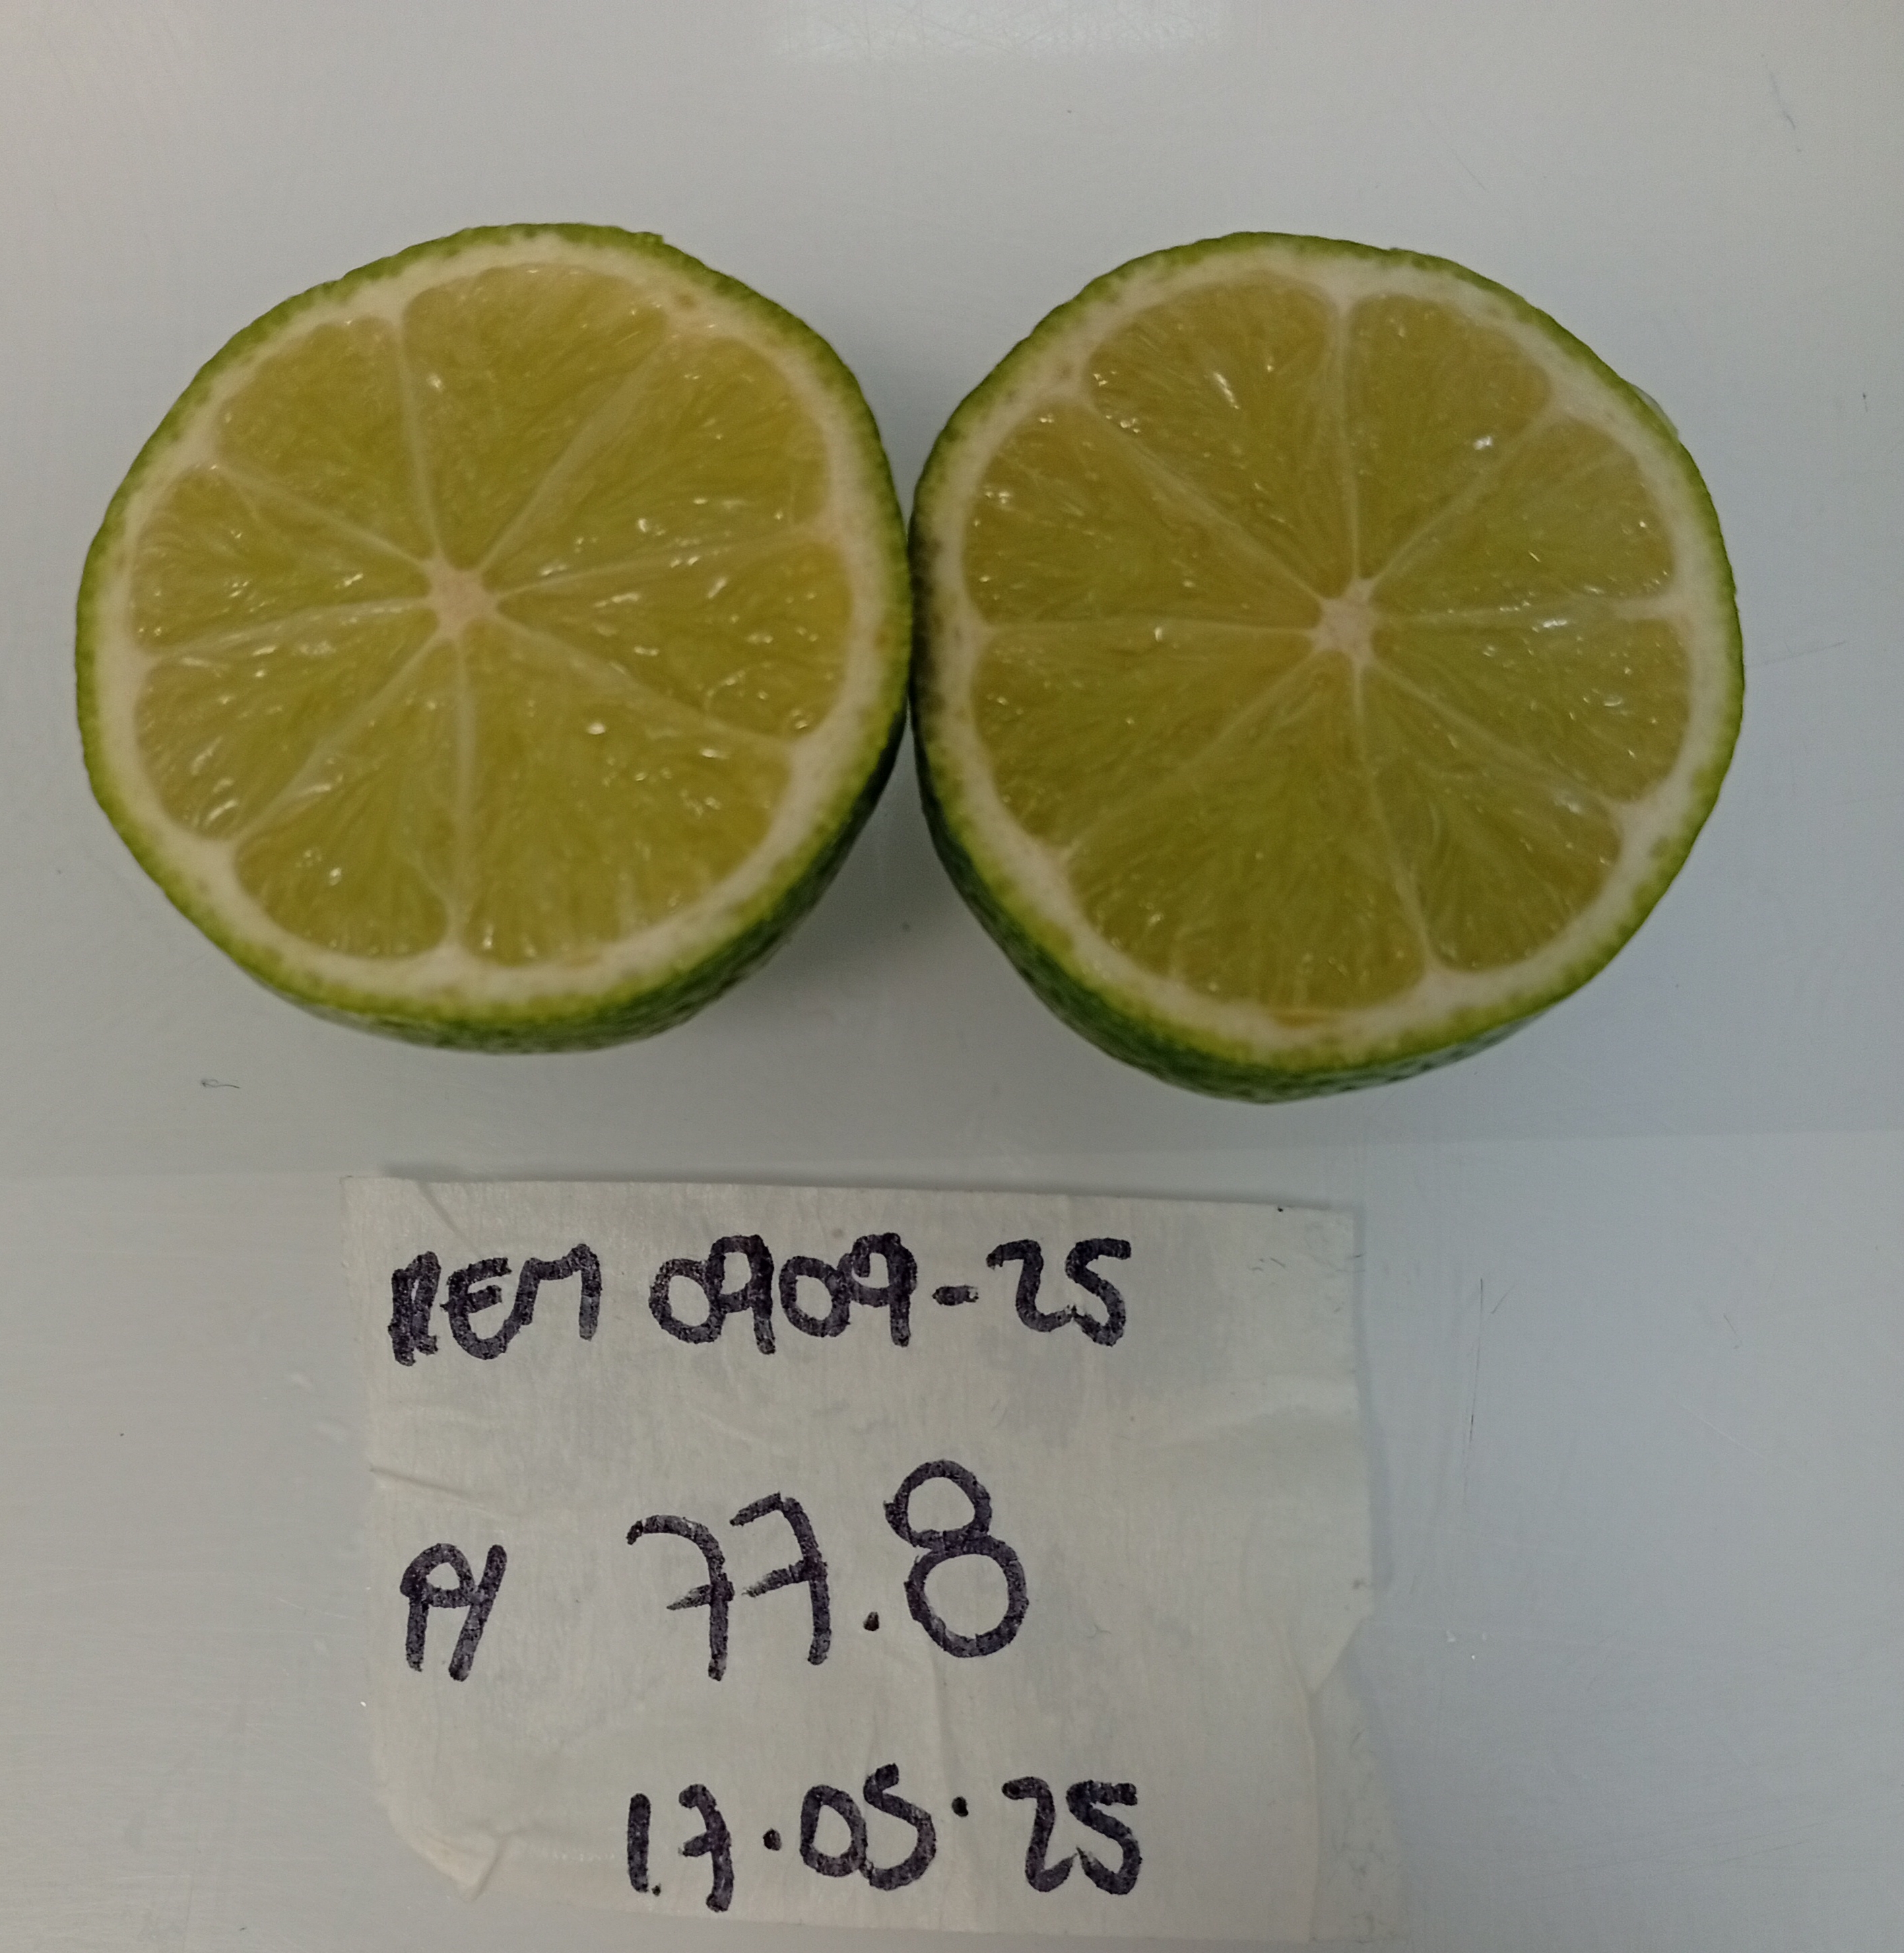 REM 0909-25
77.8
17.05.25